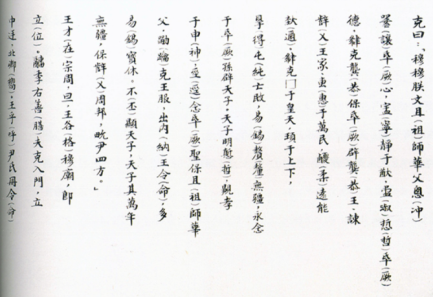 克曰:「穆穆朕文且(祖)師華父悤(沖)
(讓)氒(厥)心,(寧)靜于猷,盄(淑)悊(哲)氒(厥)
德,肆克龏(恭)保氒(厥)辟龏(恭)王,諫
辥(乂)王家,叀(惠)于萬民,(柔)遠能
(邇),肆克□于皇天,頊于上下,
得屯(純)亡敃,易(錫)釐無疆,永念
于氒(厥)孫辟天子,天子明悊(哲),覭孝
于申(神),巠(經)念氒(厥)聖保且(祖)師華
父,克王服,出內(納)王令(命),多
易(錫)寶休。不(丕)顯天子,天子其萬年
無疆,保辥(乂)周邦,畯尹四方。」
王才(在)宗周,旦,王各(格)穆廟,即
立(位),季右善(膳)夫克入門,立
中廷,北卿(嚮),王乎(呼)尹氏冊令(命)